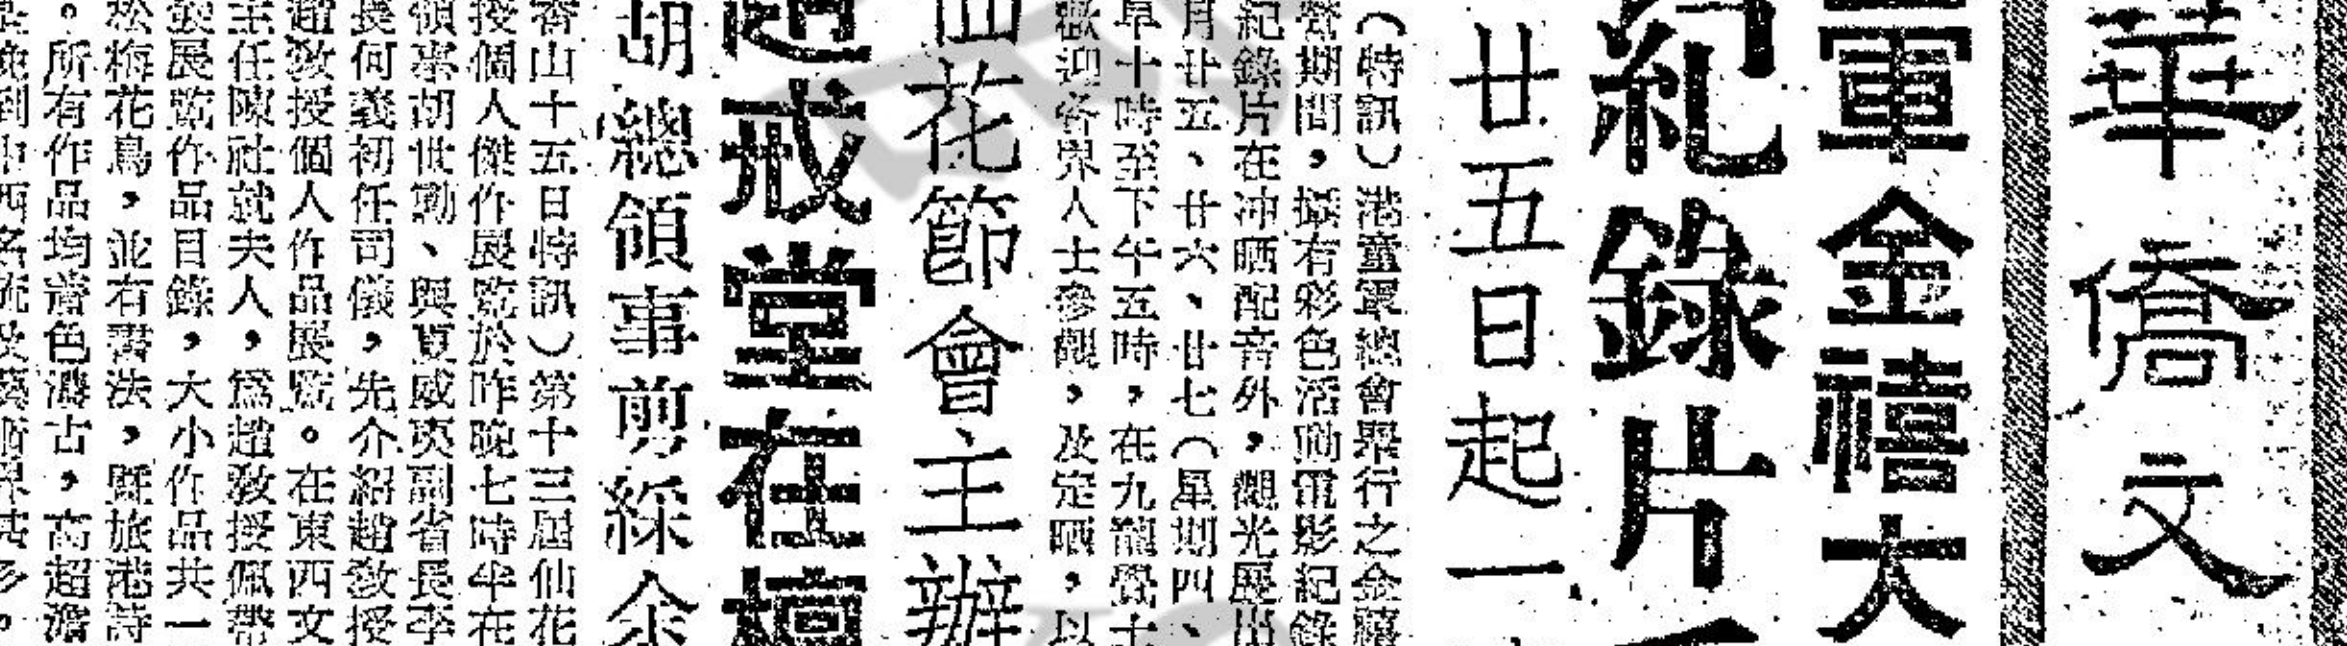 華僑文
軍金禧大
紀錄片
廿五日起一
（特訊）港童軍總會舉行之金禧
期間，攝有彩色活動電影紀錄
紀錄片在沖晒配音外，觀光展出
月廿五、廿六、廿七（星期四、
早十時至下午五時，在九龍覺士
歡迎各界人士參觀，及定晒，以
仙花節會主辦
趙戒堂在檀
胡總領事剪綵余
香山十五日特訊）第十三屆仙花
授個人傑作展覽於昨晚七時半在
領事胡世勳、與夏威夷副省長李
長何義初任司儀，先介紹趙教授
趙教授個人作品展覽。在東西文
主任陳社就夫人，為趙教授佩帶
展覽作品目錄，大小作品共一
松梅花鳥，並有書法，旅港詩
。所有作品均古，高超
晚到中西名流及藝術界甚多，